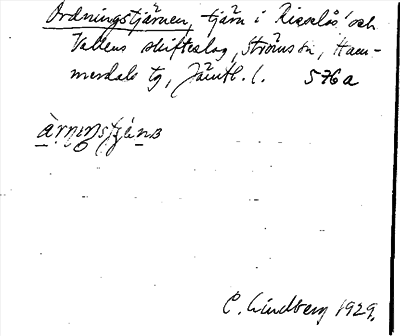 Ordningstjärnen, tjärn i Risselås och
Vallens skifteslag, Ströms sn, Ham-
merdals tg, Jämtl. l. 576a
C. Lindberg 1929.